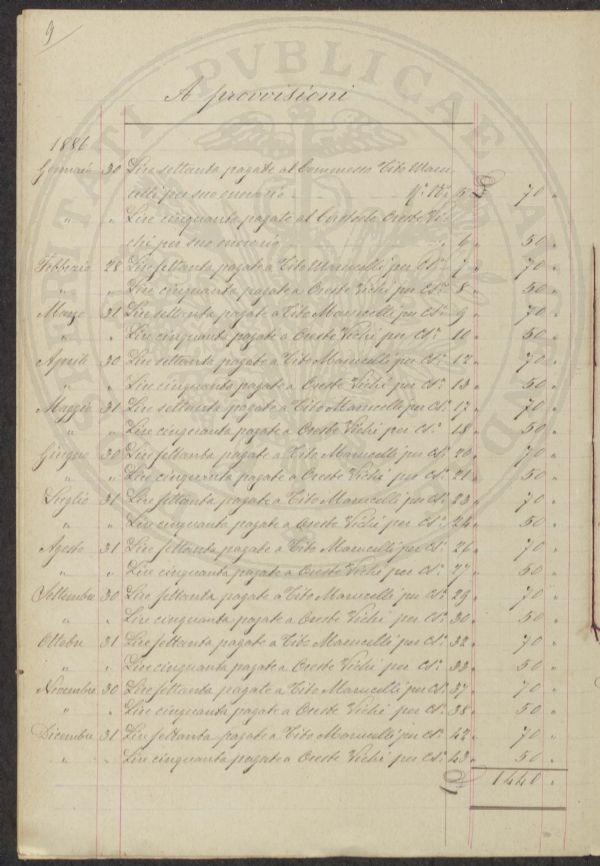 9
A provvisioni
1886
Gennaio 30 Lire settanta pagate al Commesso Tito Maru-
celli per suo onorario 5 70 "
" " Lire cinquanta pagate al Custode Oreste Vi-
chi per suo onorario 6 50 "
Febbraio 28 Lire settanta pagate a Tito Marucelli per Cs. 7 70 "
" " Lire cinquanta pagate a Oreste Vichi per Cs. 8 50 "
Marzo 31 Lire settanta pagate a Tito Marucelli per Cs. 9 70 "
" " Lire cinquanta pagate a Oreste Vichi per Cs. 10 50 "
Aprile 30 Lire settanta pagate a Tito Marucelli per Cs. 12 70 "
" " Lire cinquanta pagate a Oreste Vichi per Cs. 13 50 "
Maggio 31 Lire settanta pagate a Tito Marucelli per Cs. 17 70 "
" " Lire cinquanta pagate a Oreste Vichi per Cs. 18 50 "
Giugno 30 Lire settanta pagate a Tito Marucelli per Cs. 20 70 "
" " Lire cinquanta pagate a Oreste Vichi per Cs. 21 50 "
Luglio 31 Lire settanta pagate a Tito Marucelli per Cs. 23 70 "
" " Lire cinquanta pagate a Oreste Vichi per Cs. 24 50 "
Agosto 31 Lire settanta pagate a Tito Marucelli per Cs. 26 70 "
" " Lire cinquanta pagate a Oreste Vichi per Cs. 27 50 "
Settembre 30 Lire settanta pagate a Tito Marucelli per Cs. 29 70 "
" " Lire cinquanta pagate a Oreste Vichi per Cs. 30 50 "
Ottobre 31 Lire settanta pagate a Tito Marucelli per Cs. 32 70 "
" " Lire cinquanta pagate a Oreste Vichi per Cs. 33 50 "
Novembre 30 Lire settanta pagate a Tito Marucelli per Cs. 37 70 "
" " Lire cinquanta pagate a Oreste Vichi per Cs. 38 50 "
Dicembre 31 Lire settanta pagate a Tito Marucelli per Cs. 42 70 "
" " Lire cinquanta pagate a Oreste Vichi per Cs. 43 50 "
1440 "